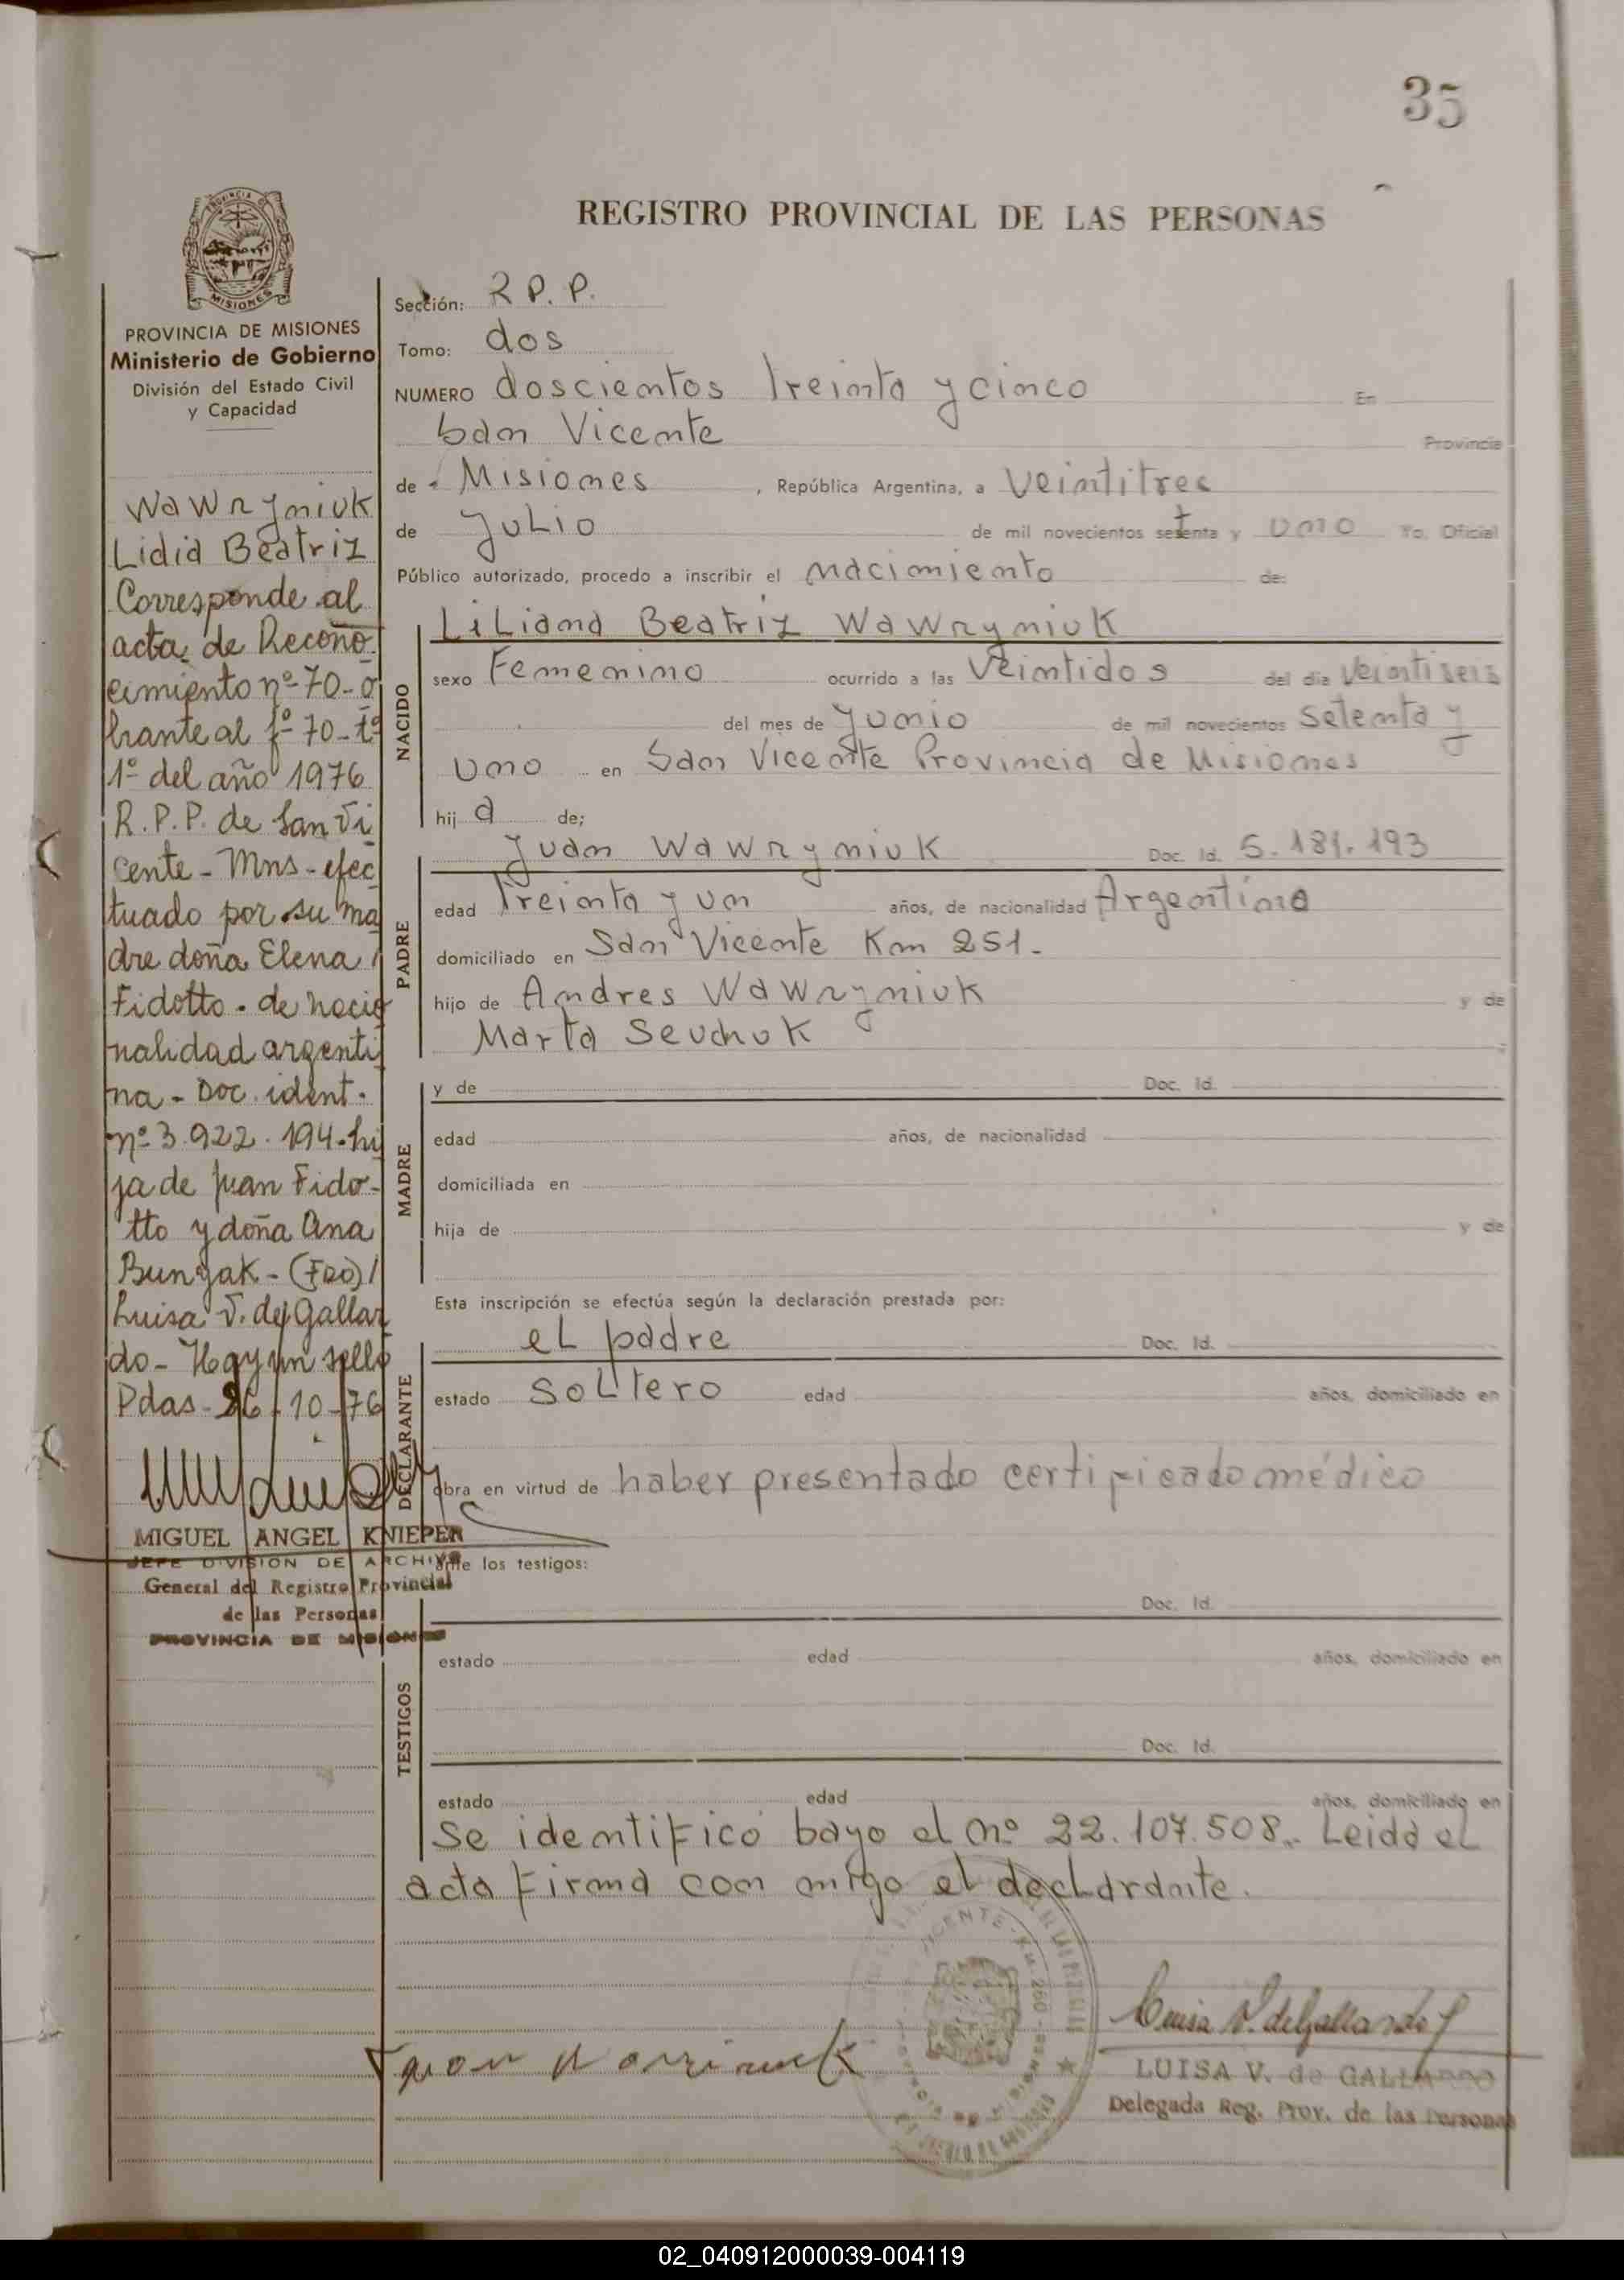 35
REGISTRO PROVINCIAL DE LAS PERSONAS
PROVINCIA
MISIONES
PROVINCIA DE MISIONES
Ministerio de Gobierno
División del Estado Civil
y Capacidad
WaWryniuk
Lidia Beatriz
Corresponde al
acta de Recono
cimiento nº 70-o
brante al fº 70-tº
1º del año 1976
R.P.P. de San Vi
cente - Mns - efec
tuado por su ma
dre doña Elena
Fidotto - de nacio
nalidad argenti
na - Doc. ident.
nº 3.922.194 - hi
ja de Juan Fido-
tto y doña Ana
Bunyak - (FDO)/
Luisa V. de Gallar
do - Hay un sello
Pdas - 26-10-76
MIGUEL ANGEL KNIEPER
JEFE DIVISION DE ARCHIVO
General del Registro Provincial
de las Personas
PROVINCIA DE MISIONES
Sección: R.P.P.
Tomo: dos
NUMERO doscientos treinta y cinco En
San Vicente Provincia
de Misiones, República Argentina, a veintitres
de Julio de mil novecientos setenta y uno Yo, Oficial
Público autorizado, procedo a inscribir el nacimiento de:
NACIDO
Liliana Beatriz Wawryniuk
sexo Femenino ocurrido a las veintidos del día veintiseis
del mes de Junio de mil novecientos setenta y
uno en San Vicente Provincia de Misiones
hija de;
PADRE
Juan Wawryniuk Doc. Id. 5.181.193
edad treinta y un años, de nacionalidad Argentino
domiciliado en San Vicente Km 251.-
hijo de Andres Wawryniuk y de
Marta Seuchuk
MADRE
y de Doc. Id.
edad años, de nacionalidad
domiciliada en
hija de y de
Esta inscripción se efectúa según la declaración prestada por:
DECLARANTE
el padre Doc. Id.
estado soltero edad años, domiciliado en
obra en virtud de haber presentado certificado médico
ante los testigos:
TESTIGOS
Doc. Id.
estado edad años, domiciliado en
Doc. Id.
estado edad años, domiciliado en
Se identificó bayo el nº 22.107.508.- Leida el
acta firma con migo el declarante.
Luisa V. de Gallardo
LUISA V. de GALLARDO
Delegada Reg. Prov. de las Personas
02_040912000039-004119